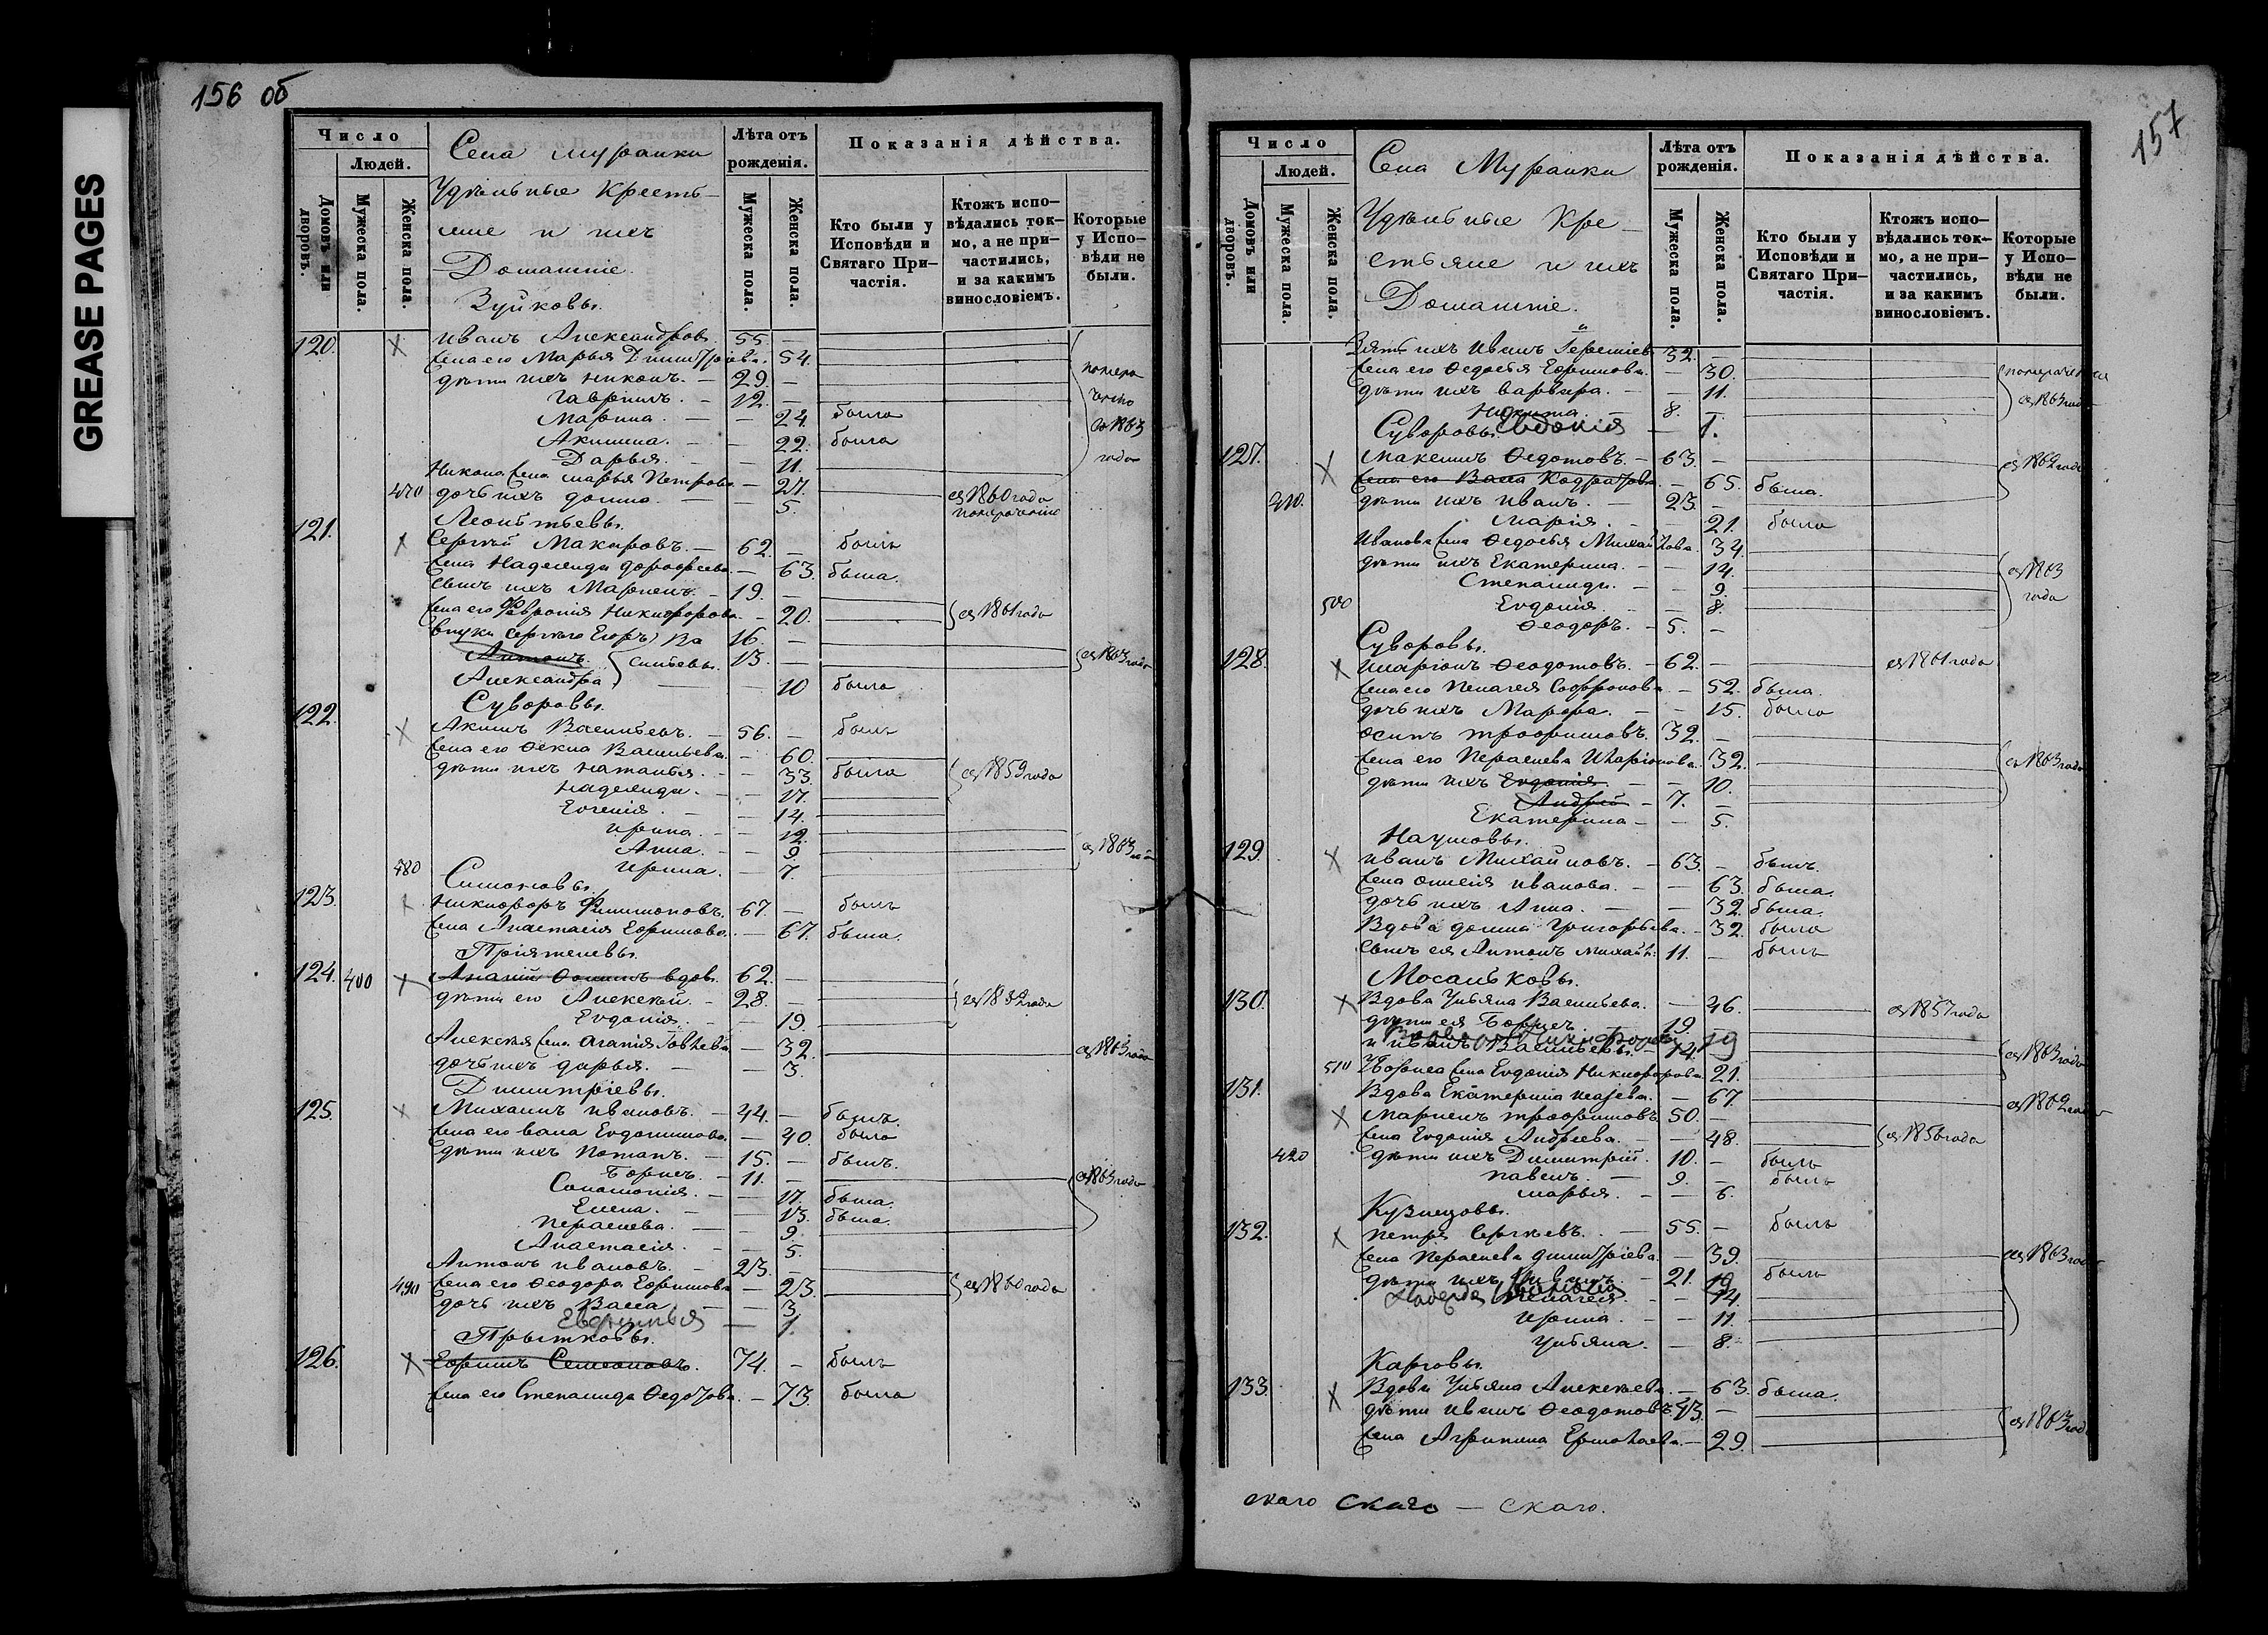 GREASE PAGES
156 об
Число
Людей.
Домовъ или дворовъ.
Мужеска пола.
Женска пола.
Села Муранки
Удѣльные Кресть-
яне и ихъ
Домашніе.
Зуйковы.
Лѣта отъ рожденія.
Мужеска пола.
Женска пола.
Показанія дѣйства.
Кто были у Исповѣди и Святаго При-частія.
Ктожъ испо-вѣдались ток-мо, а не при-частились, и за какимъ винословіемъ.
Которые у Испо-вѣди не были.
120. Иванъ Александровъ. 55. —
Жена его Марья Димитріева. 54.
дѣти ихъ Никонъ. — 29. —
Гавріилъ. — 12. —
Марина. — — 24. была
Акилина. — — 22. была
Дарья. — — 11.
съ 1863 года
Никона жена Марья Петрова — 27.
470 дочь ихъ Домна. — — 5. съ 1860 года
Леонтьевы.
121. Сергѣй Макаровъ. — 62. — былъ
Жена Надежда Дороѳеева — 63. была.
Сынъ ихъ Маркелъ. — 19. —
Жена его Февронія Никифорова — 20. съ 1861 года
внуки Сергѣя Егоръ 16. —
Антонъ 13. — съ 1863 года
Александра — 10 была
Суворовы.
122. Акимъ Васильевъ. — 56. — былъ
Жена его Ѳекла Васильева — 60.
дѣти ихъ Наталья. — — 33. была съ 1859 года
Надежда. — — 17.
Евгенія. — — 14.
Ирина. — — 12.
Анна. — — 9. съ 1863
480 Ирина. — 7.
Симоновы.
123. Никифоръ Филимоновъ. 67. — былъ
Жена Анастасія Ефимова. — 67. была.
Пріятелевы.
124. 400 Ананій Ѳоминъ вдовъ 62. —
дѣти его Алексѣй. — 28. —
Евдокія. — — 19.
Алексѣя жена Агапія — 32. съ 1863 года
дочь ихъ Дарья. — — 3.
Димитріевы.
125. Михаилъ Ивановъ. — 44. — былъ.
Жена его Васа Евдокимова. — 40. была
дѣти ихъ Потапъ. — 15. — былъ.
Борисъ. — 11. — съ 1863 года
Соломонія. — — 17. была.
Елена. — — 13. была.
Параскева. — — 9.
Анастасія. — — 5.
Антонъ Ивановъ. — 23. —
490 Жена его Ѳеодора Ефимова — 23. съ 1860 года
дочь ихъ Васса. — — 3.
Евфимья — 1.
Прытковы.
126. Ефимъ Семеоновъ. 74. — былъ
Жена его Степанида Ѳедотова. — 73. была
157
Число
Людей.
Домовъ или дворовъ.
Мужеска пола.
Женска пола.
Села Муранки
Удѣльные Кре-
стьяне и ихъ
Домашніе.
Лѣта отъ рожденія.
Мужеска пола.
Женска пола.
Показанія дѣйства.
Кто были у Исповѣди и Святаго При-частія.
Ктожъ испо-вѣдались ток-мо, а не при-частились, и за какимъ винословіемъ.
Которые у Испо-вѣди не были.
Зять ихъ Иванъ 32. —
Жена его Ѳедосья Ефимова. — 30.
дѣти ихъ Варвара. — — 11. съ 1863 года
Никита. — 8. —
Евдокія — 1.
Суворовы.
127. Максимъ Ѳедотовъ. — 63. — съ 1862 года
Жена его Васа Кодратова. — 65. была.
410. дѣти ихъ Иванъ. — 23. —
Марія. — — 21. была
Иванова жена Ѳедосья Михайлова. 34.
дѣти ихъ Екатерина. — — 14. съ 1863 года
Степанида. — — 9.
500 Евдокія. — — 8.
Ѳеодоръ. — 5. —
Суворовы.
128. Иларіонъ Ѳеодотовъ. — 62. — съ 1861 года
Жена его Пелагея Софронова — 52. была.
дочь ихъ Марѳа. — — 15. была
Осипъ Трофимовъ. 32. —
Жена его Параскева Иларіонова. 32. съ 1863 года
дѣти ихъ Евдокія. — 10.
Андрей — 7. —
Екатерина — — 5.
Наумовы.
129. Иванъ Михайловъ. — 63. — былъ.
Жена Иванова. — — 63. была.
дочь ихъ Анна. — — 32. была.
Вдова Домна Григорьева. — 32. была
Сынъ ея Антонъ 11. — былъ
Мосальковы.
130. Вдова Ульяна Васильева. — 46. съ 1857 года
дѣти ея Борисъ. 19.
и Иванъ Васильевы. — 14. 19 съ 1863 года
510 Бориса жена Евдокія Никифорова 21.
131. Вдова Екатерина — 67. съ 1862 года
Маркелъ Трофимовъ 50. —
Жена Евдокія Андреева. — — 48. съ 1856 года
420 дѣти ихъ Димитрій. 10. — былъ
Павелъ. — 9. — былъ
Марья. — — 6.
Кузнецовы.
132. Петръ Сергѣевъ. — 55. — былъ
Жена Параскева Димитріева. — 39. съ 1863 года
дѣти ихъ Иванъ. — 21. 19 былъ
Пелагея. — — 14.
Ирина. — — 11.
Ульяна. — 8.
Карповы.
133. Вдова Ульяна Алексѣева. — 63. была.
дѣти Иванъ Ѳеодотовъ. 43. — съ 1863 года
Жена Агрипина Ермолаева. — 29.
скаго скаго — скаго.